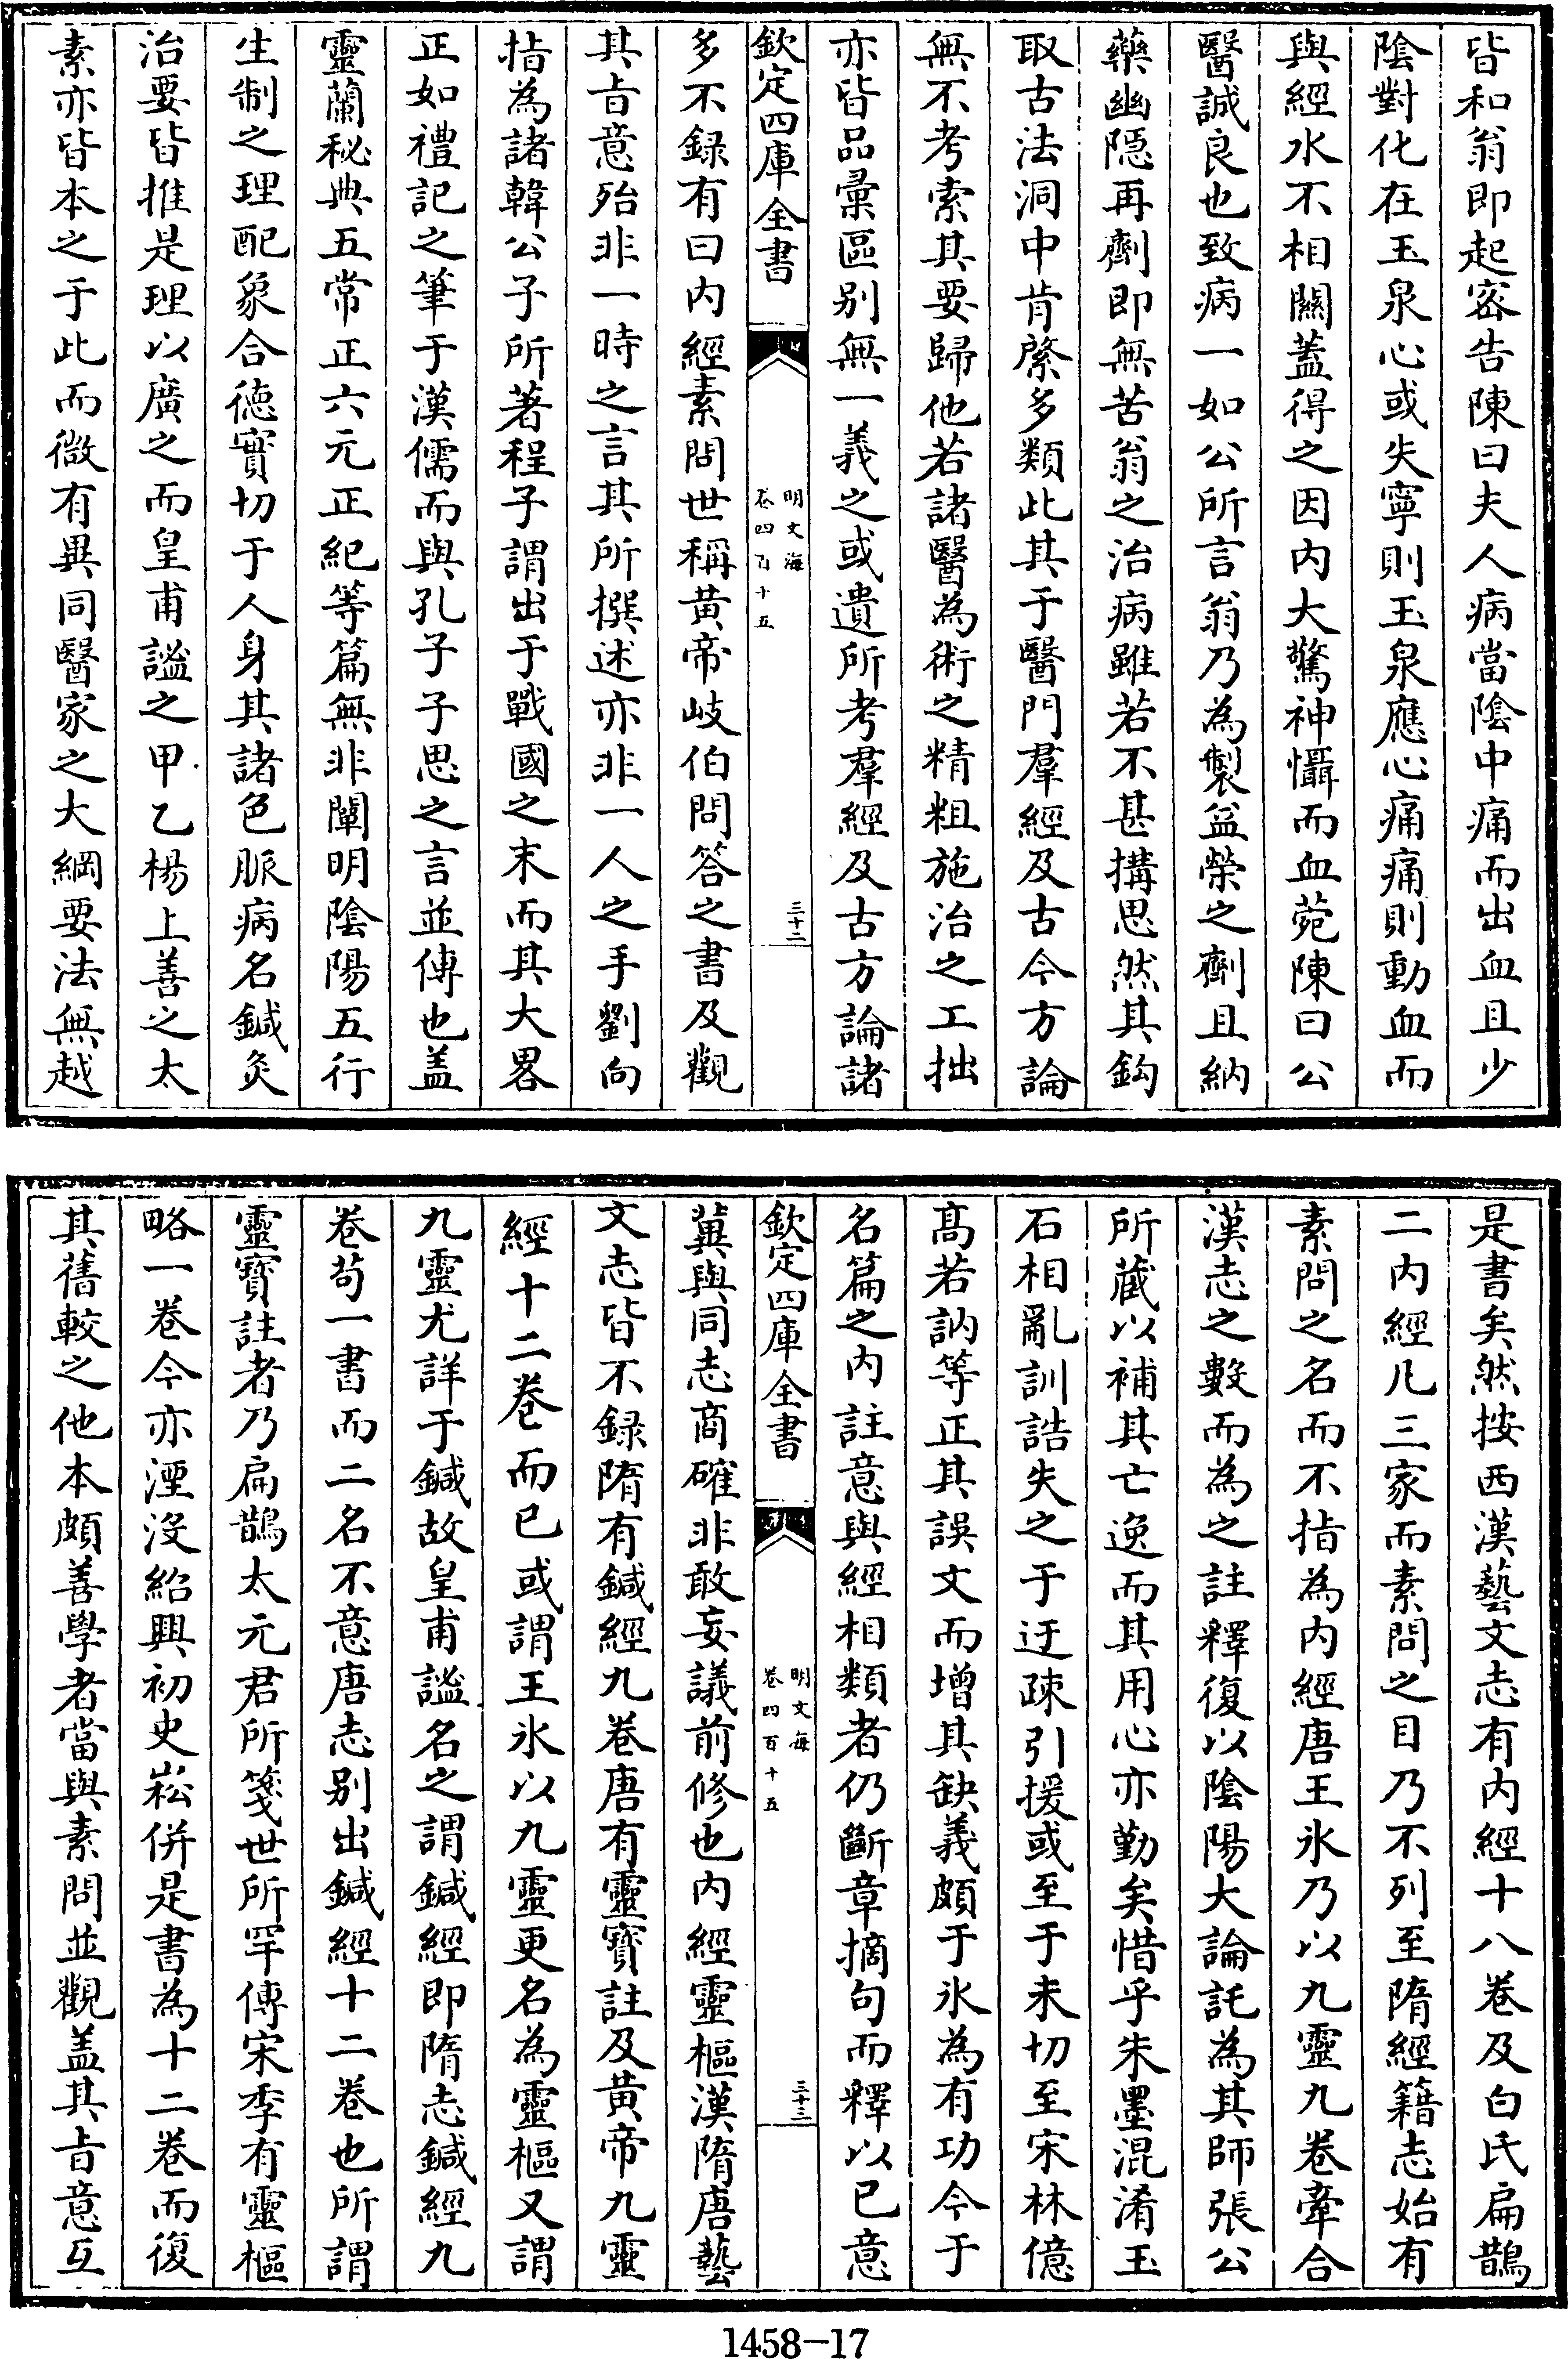 皆和翁即起密告陳曰夫人病當陰中痛而出血且少
陰對化在玉泉心或失寧則玉泉應心痛痛則動血而
與經水不相關蓋得之因内大驚神懾而血菀陳曰公
醫誠良也致病一如公所言翁乃為製益榮之劑且納
藥幽隠再劑即無苦翁之治病雖若不甚搆思然其鈎
取古法洞中肯綮多類此其于醫門羣經及古今方論
無不考索其要歸他若諸醫為術之精粗施治之工拙
亦皆品彙區别無一義之或遺所考羣經及古方論諸
欽定四庫全書
明文海
卷四百十五
三十二
多不録有曰内經素問世稱黄帝岐伯問答之書及觀
其㫖意殆非一時之言其所撰述亦非一人之手劉向
指為諸韓公子所著程子謂出于戰國之末而其大畧
正如禮記之筆于漢儒而與孔子子思之言並傳也盖
靈蘭秘典五常正六元正紀等篇無非闡明陰陽五行
生制之理配象合徳實切于人身其諸色脈病名鍼灸
治要皆推是理以廣之而皇甫謐之甲乙楊上善之太
素亦皆本之于此而微有異同醫家之大綱要法無越
是書矣然按西漢藝文志有内經十八卷及白氏扁鵲
二内經凡三家而素問之目乃不列至隋經籍志始有
素問之名而不指為内經唐王氷乃以九靈九卷牽合
漢志之數而為之註釋復以陰陽大論託為其師張公
所藏以補其亡逸而其用心亦勤矣惜乎朱墨混淆玉
石相亂訓誥失之于迂疎引援或至于未切至宋林億
髙若訥等正其誤文而增其缺義頗于氷為有功今于
名篇之内註意與經相類者仍斷章摘句而釋以已意
欽定四庫全書
明文海
卷四百十五
三十三
冀與同志商確非敢妄議前修也内經靈樞漢隋唐藝
文志皆不録隋有鍼經九卷唐有靈寳註及黄帝九靈
經十二卷而已或謂王氷以九靈更名為靈樞又謂
九靈尤詳于鍼故皇甫謐名之謂鍼經即隋志鍼經九
卷苟一書而二名不意唐志别出鍼經十二卷也所謂
靈寳註者乃扁鵲太元君所箋世所罕傳宋季有靈樞
略一卷今亦湮没紹興初史崧併是書為十二卷而復
其舊較之他本頗善學者當與素問並觀盖其㫖意互
1458—17